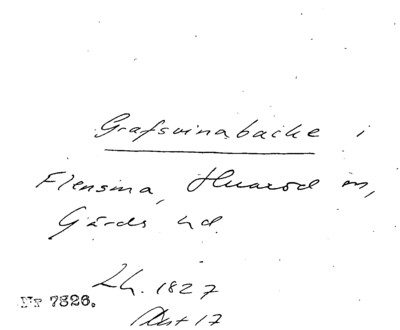 Grafsvinabacke i
Flensma, Huaröd sn,
Gärds hd.
Lh. 1827
Nr 7826.
Akt 17